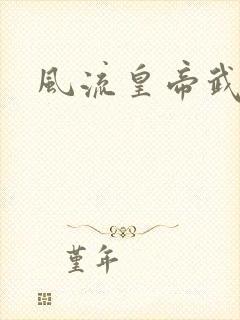 風流皇帝武
堇年